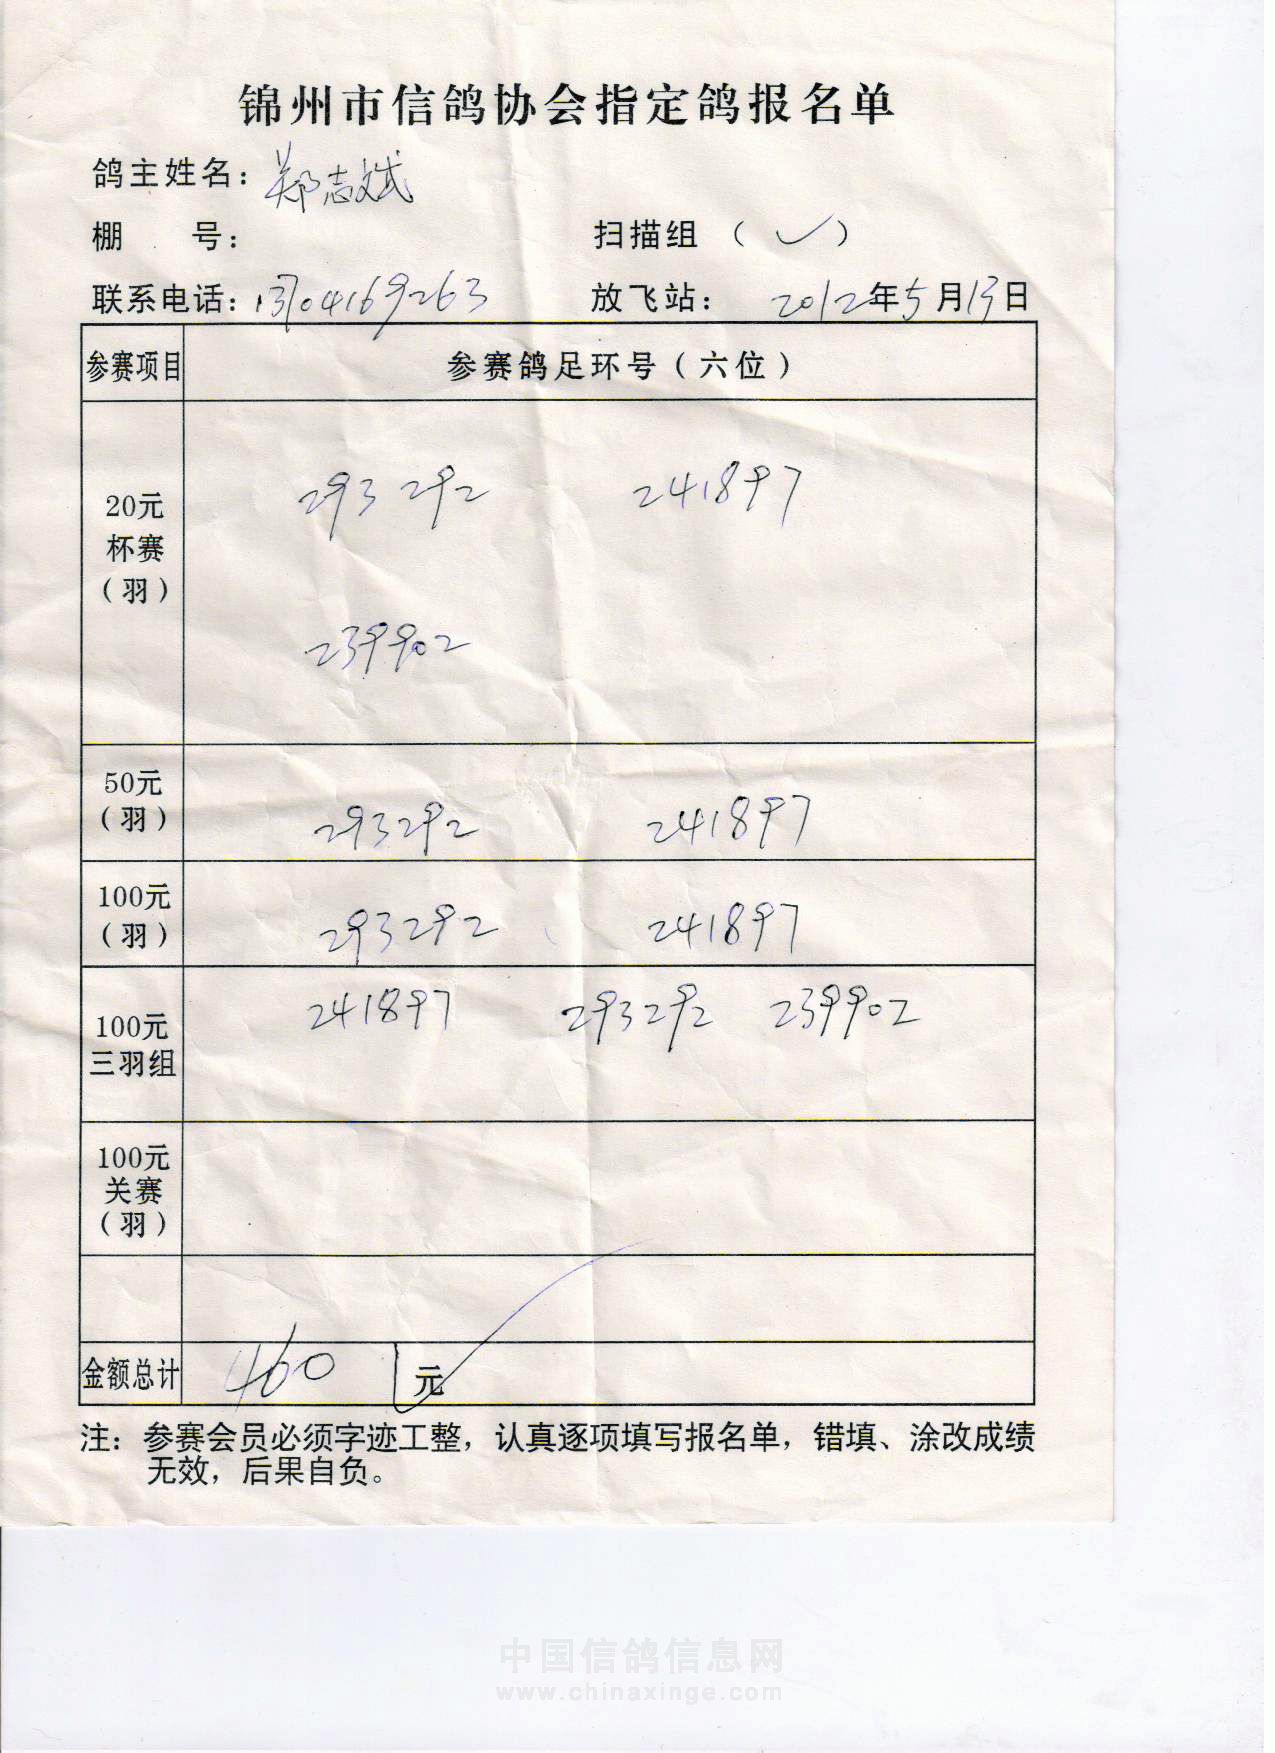 锦州市信鸽协会指定鸽报名单
鸽主姓名：郑志斌
棚 号： 扫描组（✓）
联系电话：13704169263 放飞站： 2012年5月13日
参赛项目 参赛鸽足环号（六位）
20元
杯赛
（羽）
293292 241897
239902
50元
（羽）
293292 241897
100元
（羽）
293292 241897
100元
三羽组
241897 293292 239902
100元
关赛
（羽）
金额总计 460 元
注：参赛会员必须字迹工整，认真逐项填写报名单，错填、涂改成绩
无效，后果自负。
中国信鸽信息网
www.chinaxinge.com